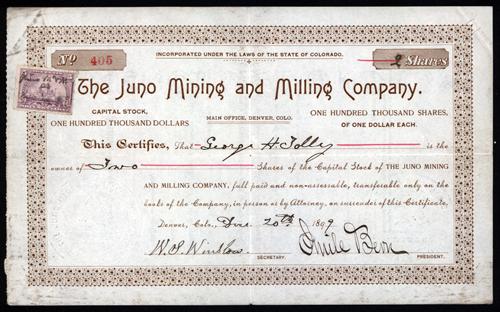 INCORPORATED UNDER THE LAWS OF THE STATE OF COLORADO.
No 405
2 Shares
The Juno Mining and Milling Company.
CAPITAL STOCK,
ONE HUNDRED THOUSAND DOLLARS
MAIN OFFICE, DENVER, COLO.
ONE HUNDRED THOUSAND SHARES,
OF ONE DOLLAR EACH.
This Certifies, That George H Tolby is the
owner of Two Shares of the Capital Stock of THE JUNO MINING
AND MILLING COMPANY, full paid and non-assessable, transferable only on the
books of the Company, in person or by Attorney, on surrender of this Certificate,
Denver, Colo., Dec. 20th 1899
W. S. Winslow
SECRETARY.
PRESIDENT.